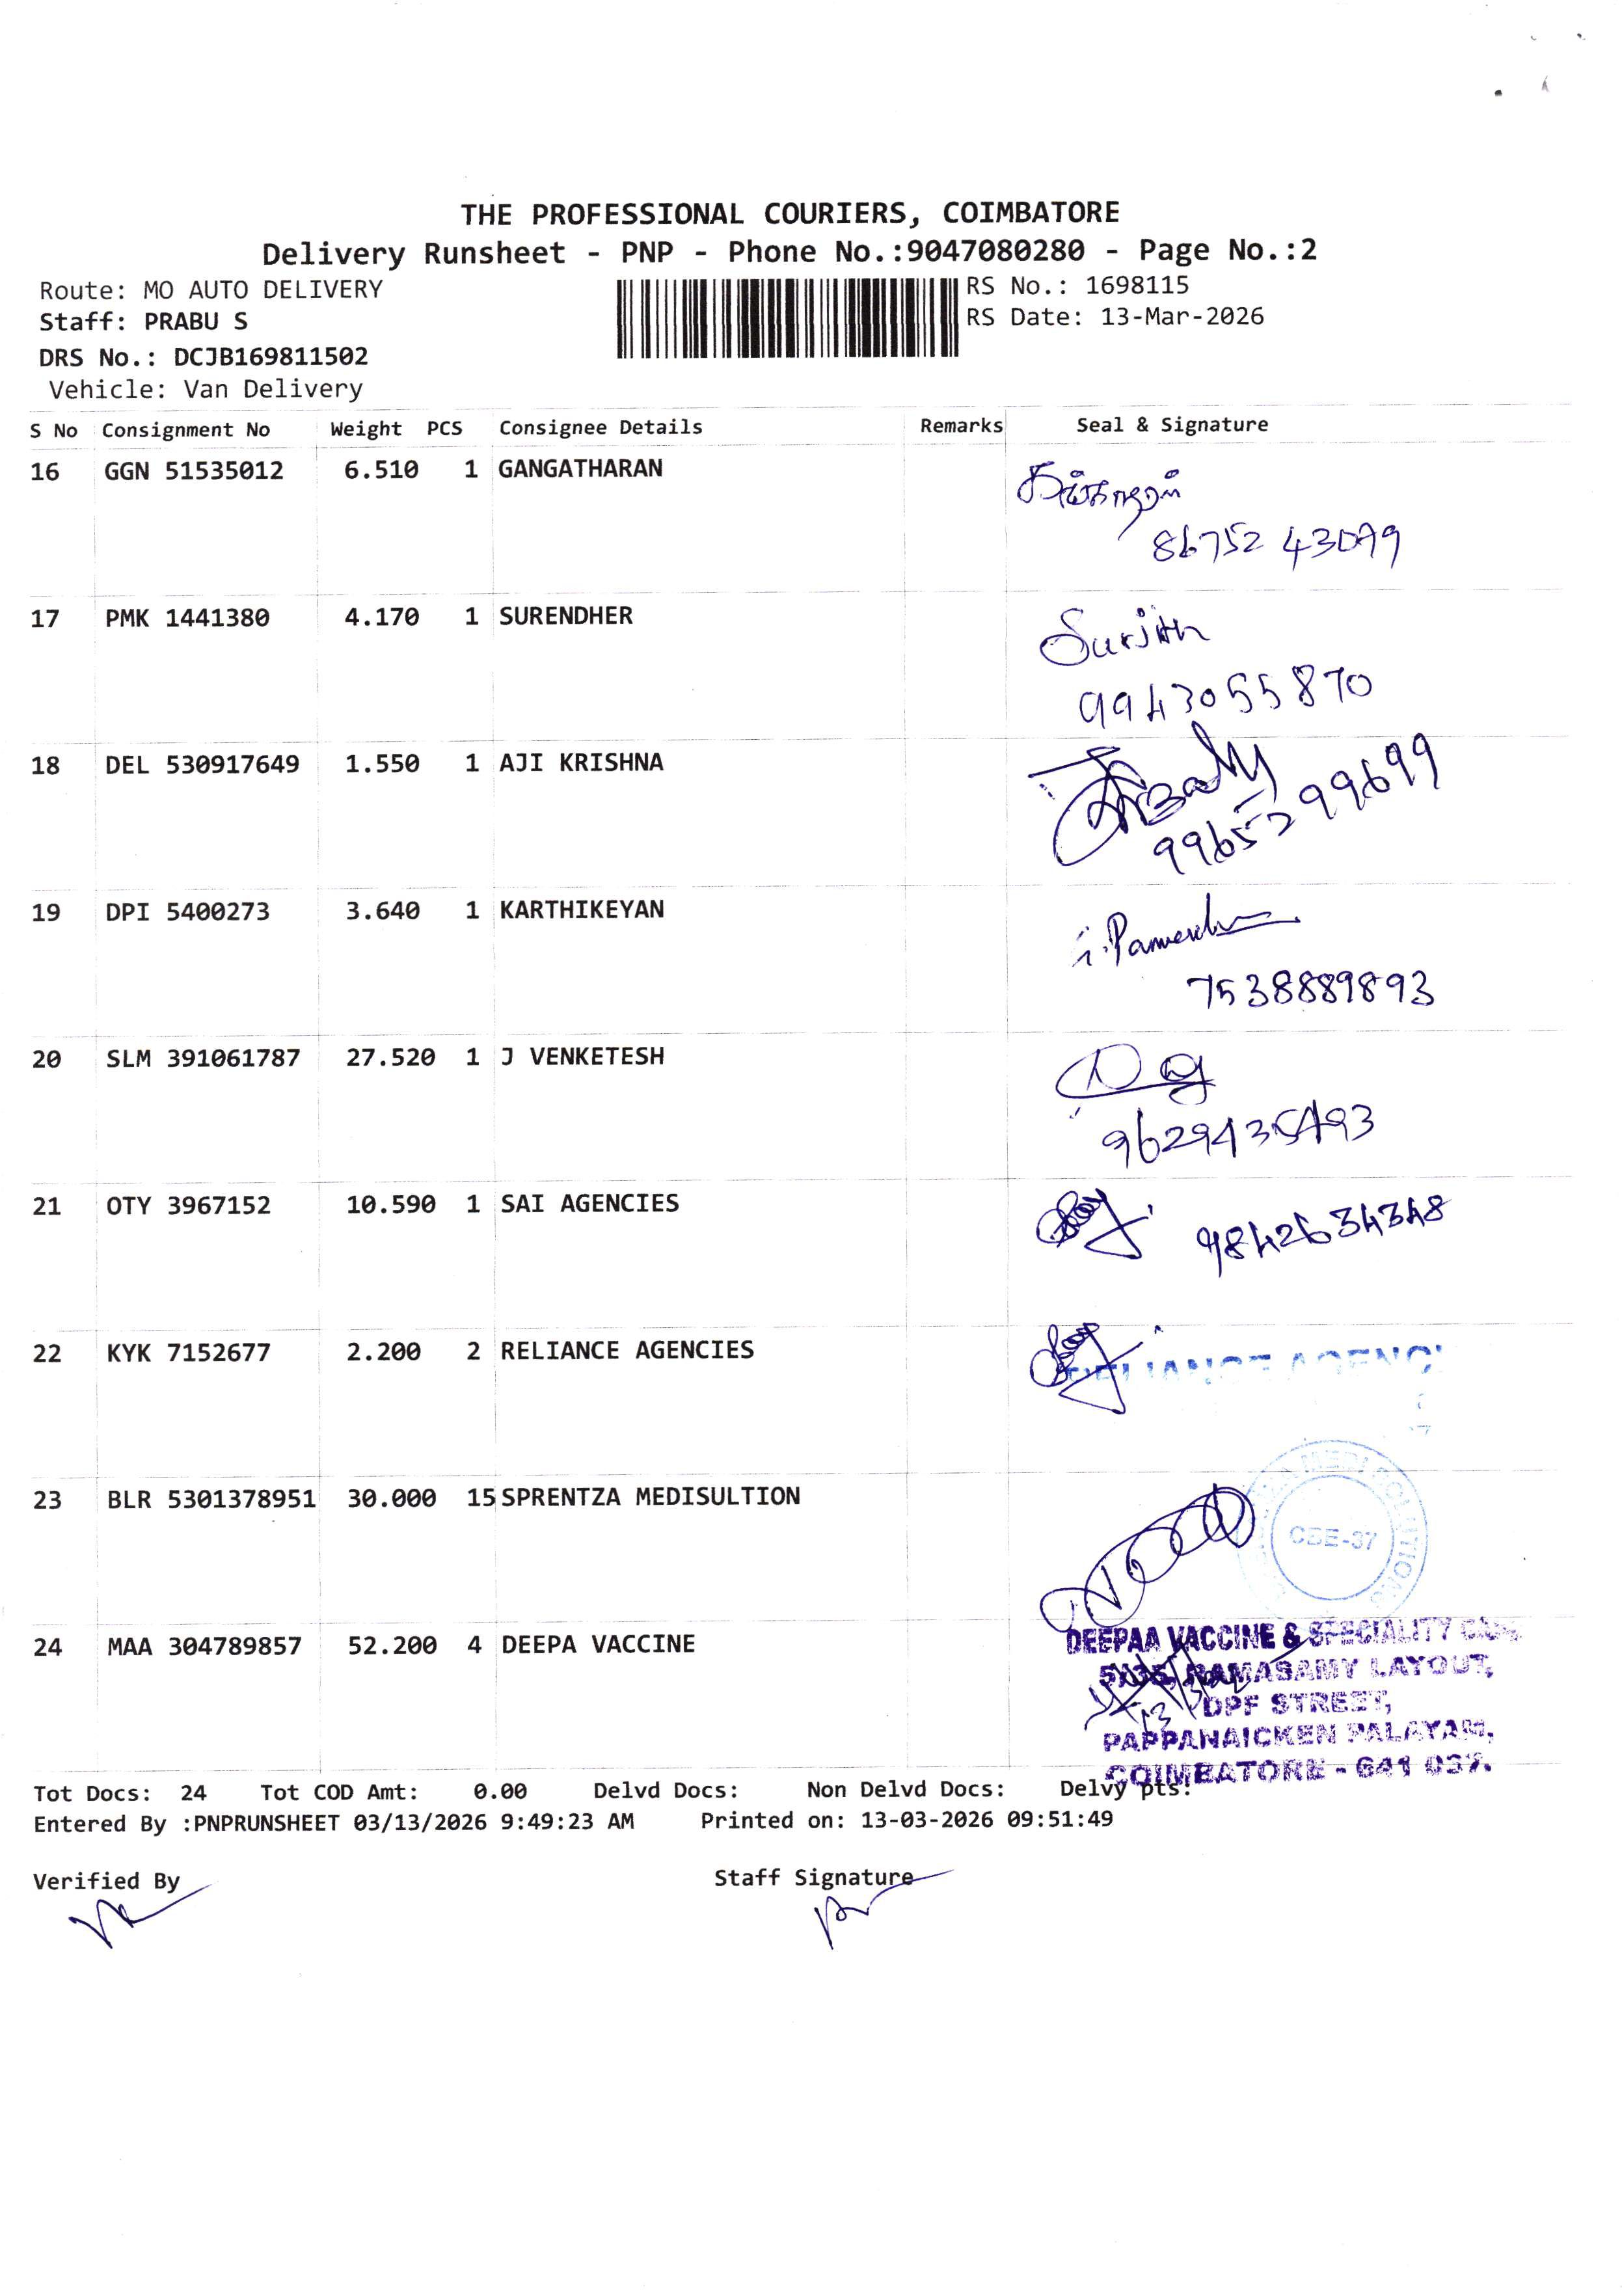 THE PROFESSIONAL COURIERS, COIMBATORE
Delivery Runsheet - PNP - Phone No.:9047080280 - Page No.:2
Route: MO AUTO DELIVERY
RS No.: 1698115
Staff: PRABU S
RS Date: 13-Mar-2026
DRS No.: DCJB169811502
Vehicle: Van Delivery
S No Consignment No Weight PCS Consignee Details Remarks Seal & Signature
16 GGN 51535012 6.510 1 GANGATHARAN
86752 43099
17 PMK 1441380 4.170 1 SURENDHER
Surjith
9943055870
18 DEL 530917649 1.550 1 AJI KRISHNA
9965299699
19 DPI 5400273 3.640 1 KARTHIKEYAN
7538889893
20 SLM 391061787 27.520 1 J VENKETESH
9629435493
21 OTY 3967152 10.590 1 SAI AGENCIES
9842634348
22 KYK 7152677 2.200 2 RELIANCE AGENCIES
RELIANCE AGENCI
23 BLR 5301378951 30.000 15 SPRENTZA MEDISULTION
MEDI SOLUTIONS
CBE-37
24 MAA 304789857 52.200 4 DEEPA VACCINE
DEEPAA VACCINE & SPECIALITY
RAMASAMY LAYOUT,
DPF STREET,
PAPPANAICKEN PALAYAM,
COIMBATORE - 641 037.
Tot Docs: 24 Tot COD Amt: 0.00 Delvd Docs: Non Delvd Docs: Delvy pts:
Entered By :PNPRUNSHEET 03/13/2026 9:49:23 AM Printed on: 13-03-2026 09:51:49
Verified By Staff Signature